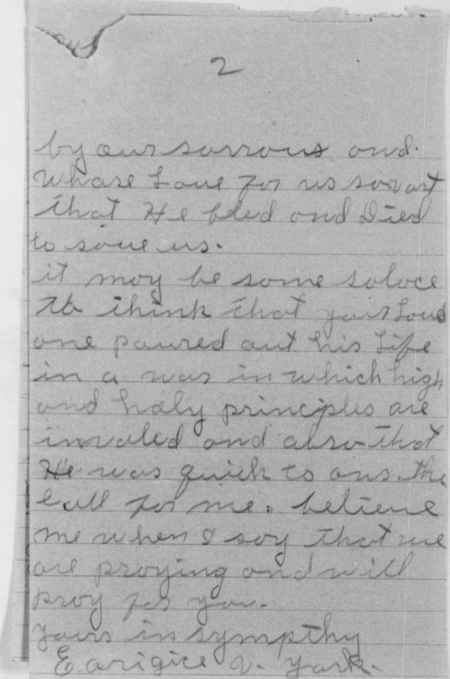 2
by our sorrous and
whose Love for us so vast
that He bled and Died
to save us.
it may be some solace
to think that your Loved
one poured out his Life
in a war in which high
and holy principles are
involed and also that
He was quick to ans. the
call for me. believe
me when I say that we
are praying and will
pray for you.
yours in sympthy
V. York.